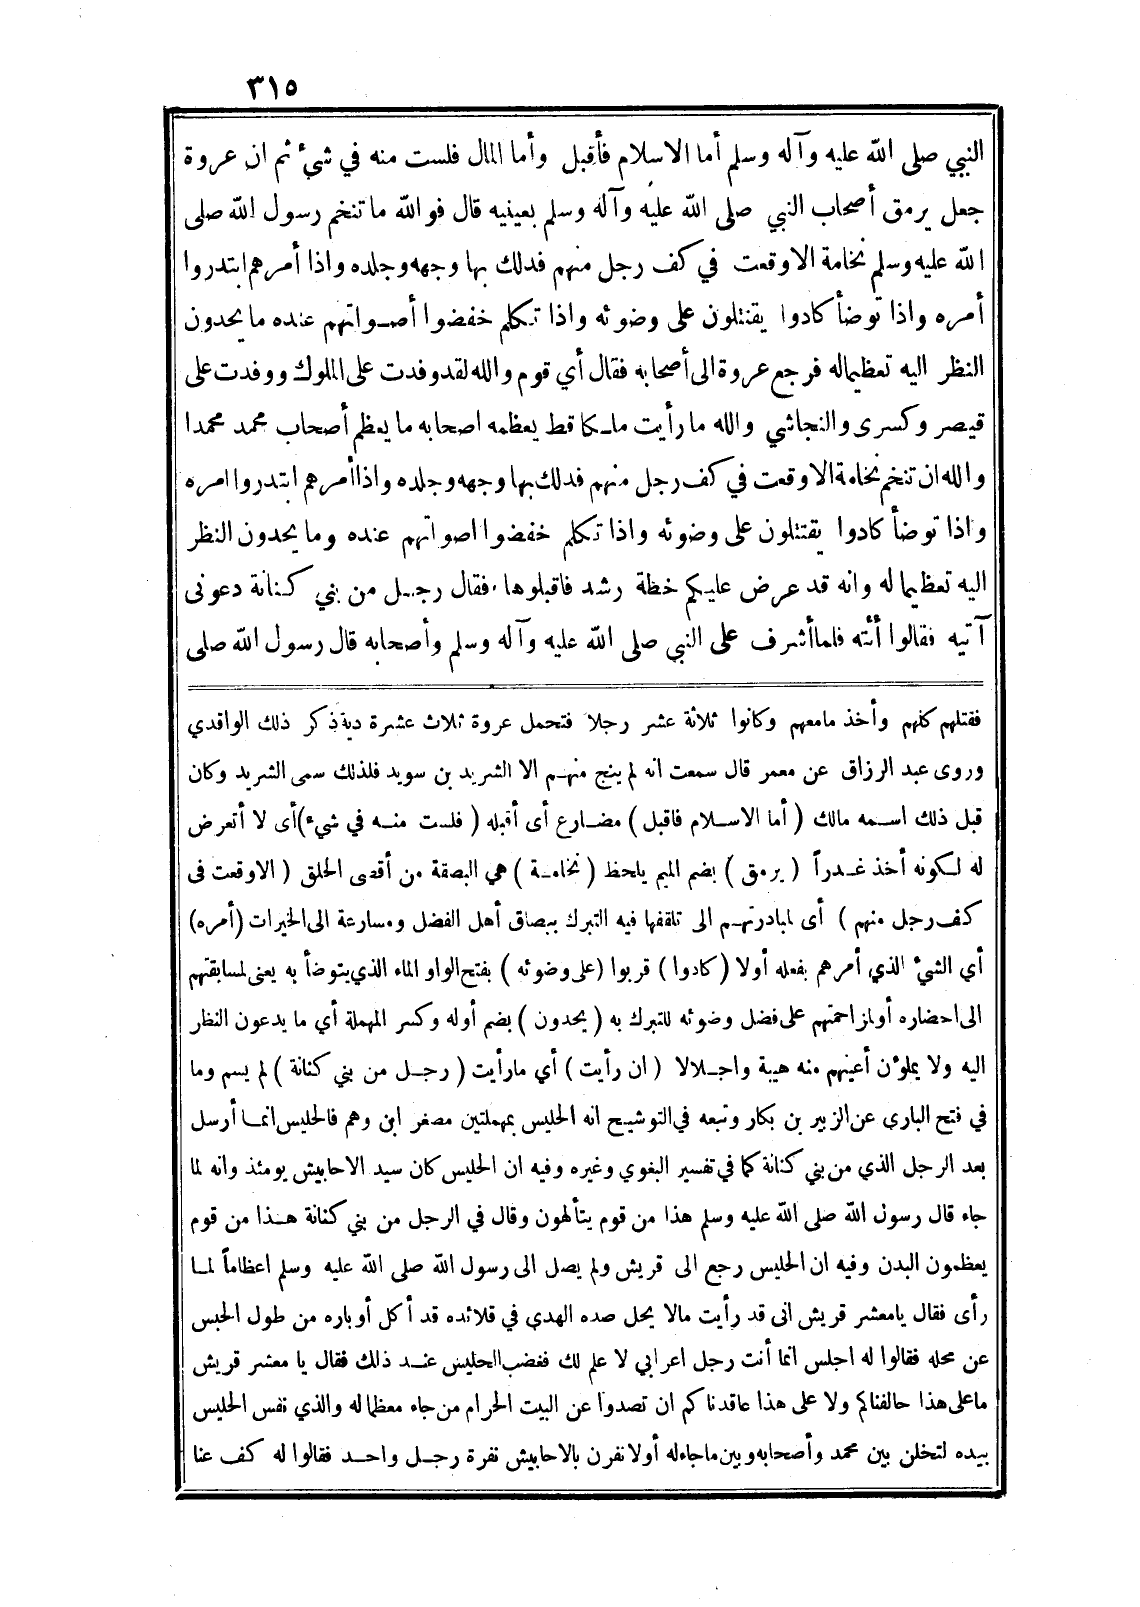 ٣١٥
النبي صلى الله عليه وآله وسلم أما الاسلام فأقبل وأما المال فلست منه في شيء ثم ان عروة
جعل يرمق أصحاب النبي صلى الله عليه وآله وسلم بعينيه قال فو الله ما تنخم رسول الله صلى
الله عليه وسلم نخامة الا وقعت في كف رجل منهم فدلك بها وجهه وجلده واذا أمرهم ابتدروا
أمره واذا توضأ كادوا يقتتلون على وضوئه واذا تكلم خفضوا أصواتهم عنده ما يحدون
النظر اليه تعظيما له فرجع عروة الى أصحابه فقال أي قوم والله لقد وفدت على الملوك ووفدت على
قيصر وكسرى والنجاشي والله ما رأيت ملكا قط يعظمه اصحابه ما يعظم أصحاب محمد محمدا
والله ان تنخم نخامة الا وقعت في كف رجل منهم فدلك بها وجهه وجلده واذا أمرهم ابتدروا امره
واذا توضأ كادوا يقتتلون على وضوئه واذا تكلم خفضوا اصواتهم عنده وما يحدون النظر
اليه تعظيما له وانه قد عرض عليكم خطة رشد فاقبلوها فقال رجل من بني كنانة دعونى
آتيه فقالوا أئته فلما أشرف على النبي صلى الله عليه وآله وسلم وأصحابه قال رسول الله صلى
فقتلهم كلهم وأخذ مامعهم وكانوا ثلاثة عشر رجلا فتحمل عروة ثلاث عشرة دية ذكر ذلك الواقدي
وروى عبد الرزاق عن معمر قال سمعت انه لم ينج منهم الا الشريد بن سويد فلذلك سمى الشريد وكان
قبل ذلك اسمه مالك ( أما الاسلام فاقبل ) مضارع أى أقبله ( فلست منه في شيء ) أى لا أتعرض
له لكونه أخذ غدراً ( يرمق ) بضم الميم يلحظ ( نخامة ) هي البصقة من أقصى الحلق ( الا وقعت فى
كف رجل منهم ) أى لمبادرتهم الى تلقفها فيه التبرك ببصاق أهل الفضل ومسارعة الى الخيرات (أمره)
أي الشيء الذي أمرهم بفعله أولا ( كادوا ) قربوا (على وضوئه ) بفتح الواو الماء الذي يتوضأ به يعنى لمسابقتهم
الى احضاره أولمزاحمتهم على فضل وضوئه للتبرك به ( يحدون ) بضم أوله وكسر المهملة أي ما يدعون النظار
اليه ولا يملؤن أعينهم منه هيبة واجلالا ( ان رأيت ) أي مارأيت ( رجل من بني كنانة ) لم يسم وما
في فتح الباري عن الزبير بن بكار وتبعه في التوشيح انه الحليس بمهملتين مصغر ابن وهم فالحليس انما أرسل
بعد الرجل الذي من بني كنانة كما في تفسير البغوي وغيره وفيه ان الحليس كان سيد الاحابيش يومئذ وانه لما
جاء قال رسول الله صلى الله عليه وسلم هذا من قوم يتألهون وقال في الرجل من بني كنانة هذا من قوم
يعظمون البدن وفيه ان الحليس رجع الى قريش ولم يصل الى رسول الله صلى الله عليه وسلم اعظاماً لما
رأى فقال يامعشر قريش انى قد رأيت مالا يحل صده الهدى في قلائده قد أكل أوباره من طول الحبس
عن محله فقالوا له اجلس انما أنت رجل اعرابي لا علم لك فغضب الحليس عند ذلك فقال يا معشر قريش
ماعلى هذا حالفناكم ولا على هذا عاقدناكم ان تصدوا عن البيت الحرام من جاء معظما له والذي نفس الحليس
بيده لتخلن بين محمد وأصحابه وبين ماجاء له أولا نفرن بالاحابيش نفرة رجل واحد فقالوا له كف عنا